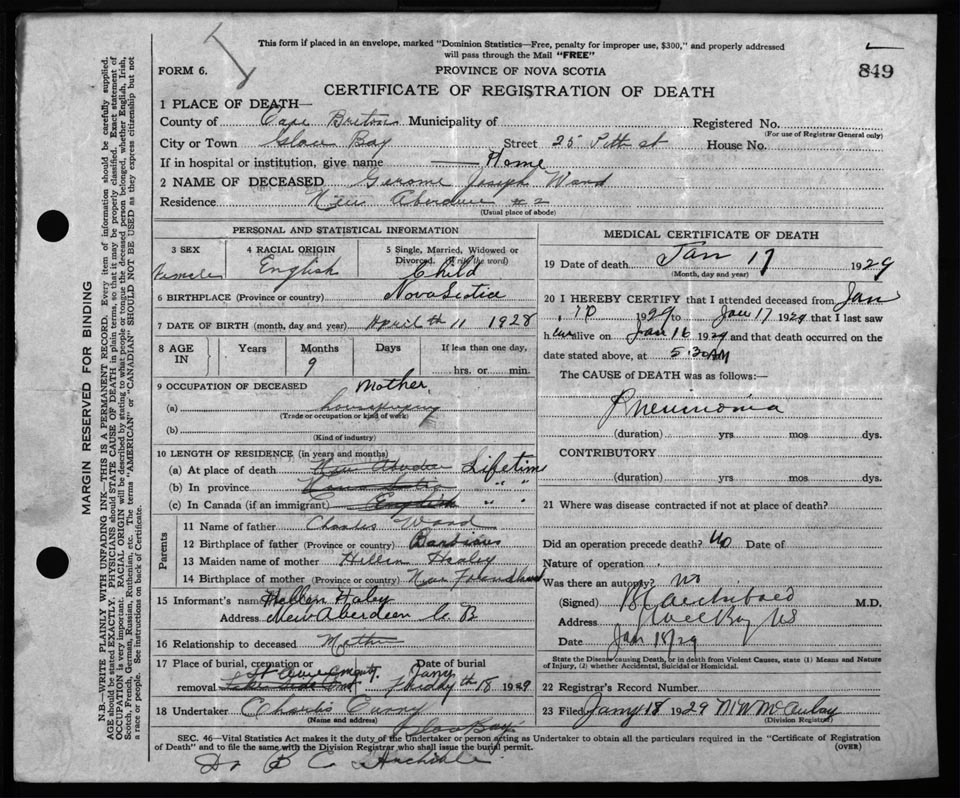 This form if placed in an envelope, marked "Dominion Statistics—Free, penalty for improper use, $300," and properly addressed
will pass through the Mail "FREE"
FORM 6.
PROVINCE OF NOVA SCOTIA
849
CERTIFICATE OF REGISTRATION OF DEATH
1 PLACE OF DEATH—
County of Cape Breton Municipality of Registered No.
(For use of Registrar General only)
City or Town Glace Bay Street 25 Pitth st House No.
If in hospital or institution, give name Home
2 NAME OF DECEASED Gerome Joseph Ward
Residence New Aberdeen #2
(Usual place of abode)
PERSONAL AND STATISTICAL INFORMATION
3 SEX
4 RACIAL ORIGIN
5 Single, Married, Widowed or
Divorced. (Write the word)
Female English Child
6 BIRTHPLACE (Province or country) Nova Scotia
7 DATE OF BIRTH (month, day and year) April th 11 1928
8 AGE IN
Years Months Days If less than one day,
9
hrs. or min.
9 OCCUPATION OF DECEASED Mother
(a) housekeeping
(Trade or occupation or kind of work)
(b)
(Kind of industry)
10 LENGTH OF RESIDENCE (in years and months)
(a) At place of death New Aberdeen Lifetime
(b) In province Nova Scotia " "
(c) In Canada (if an immigrant) English " "
Parents
11 Name of father Charles Ward
12 Birthplace of father (Province or country)
13 Maiden name of mother Hellen Healy
14 Birthplace of mother (Province or country) New Foundland
15 Informant's name Hellen Haley
Address New Aberdeen C. B
16 Relationship to deceased Mother
17 Place of burial, cremation or
removal
Date of burial
Jany
Friday th 18 1929
18 Undertaker Charlis Curry
(Name and address)
Glace Bay
MEDICAL CERTIFICATE OF DEATH
19 Date of death Jan 17 1929
(Month, day and year)
20 I HEREBY CERTIFY that I attended deceased from Jan
10 1929 to Jan 17 1929 that I last saw
h alive on Jan 16 1929 and that death occurred on the
date stated above, at 5.30 AM
The CAUSE of DEATH was as follows:—
Pneumonia
(duration) yrs mos dys.
CONTRIBUTORY
(duration) yrs mos dys.
21 Where was disease contracted if not at place of death?
Did an operation precede death? No Date of
Nature of operation
Was there an autopsy? no
(Signed) Archibald M.D.
Address Glace Bay NS
Date Jan 18/29
State the Disease causing Death, or in death from Violent Causes, state (1) Means and Nature
of Injury, (2) whether Accidental, Suicidal or Homicidal.
22 Registrar's Record Number
23 Filed Jany 18 1929 M W McAulay
(Division Registrar)
SEC. 46—Vital Statistics Act makes it the duty of the Undertaker or person acting as Undertaker to obtain all the particulars required in the "Certificate of Registration
of Death" and to file the same with the Division Registrar who shall issue the burial permit.
(OVER)
Dr B C Archible
MARGIN RESERVED FOR BINDING
N.B.—WRITE PLAINLY WITH UNFADING INK—THIS IS A PERMANENT RECORD. Every item of information should be carefully supplied.
AGE should be stated EXACTLY. PHYSICIANS should STATE CAUSE OF DEATH in plain terms, so that it may be properly classified. Exact statement of
OCCUPATION is very important. RACIAL ORIGIN will be described by stating to what people or tongue the deceased person belonged, whether English, Irish,
Scotch, French, German, Russian, Ruthenian, etc. The terms "AMERICAN" or "CANADIAN" SHOULD NOT BE USED as they express citizenship but not
a race or people. See instructions on back of Certificate.